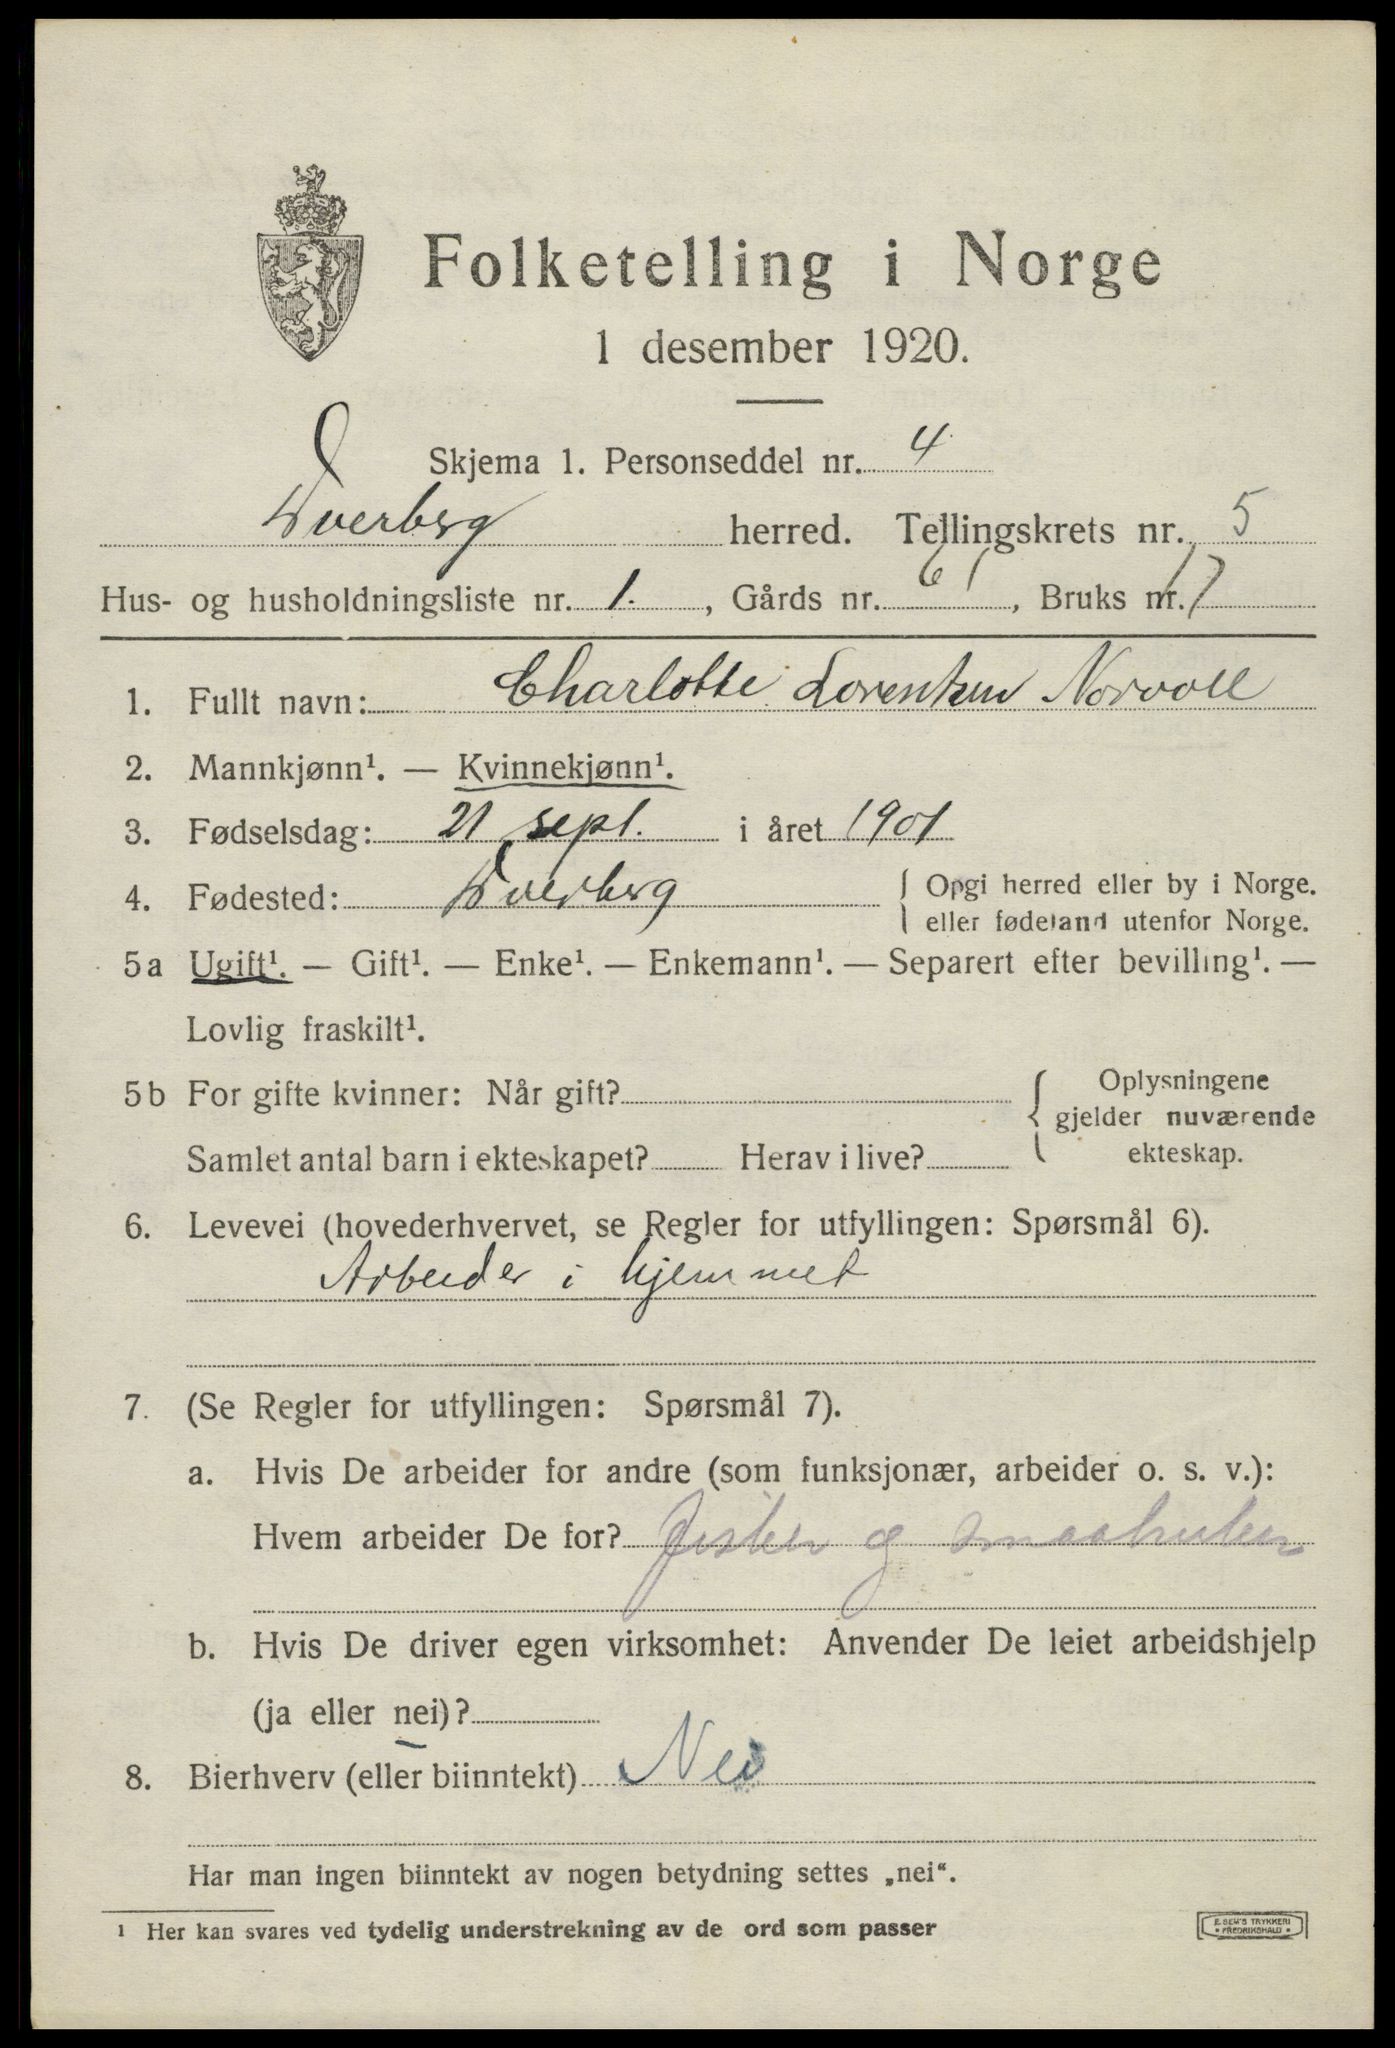 Folketelling i Norge
1 desember 1920.
Skjema 1. Personseddel nr. 4
Dverberg herred. Tellingskrets nr. 5
Hus- og husholdningsliste nr. 1. , Gårds nr. 61 , Bruks nr. 17
1. Fullt navn: Charlotte Lorentzen Norvoll
2. Mannkjønn¹. — Kvinnekjønn¹.
3. Fødselsdag: 21 sept. i året 1901
4. Fødested: Dverberg { Opgi herred eller by i Norge.
eller fødeland utenfor Norge.
5a Ugift¹. — Gift¹. — Enke¹. — Enkemann¹. — Separert efter bevilling¹. —
Lovlig fraskilt¹.
5b For gifte kvinner: Når gift? { Oplysningene
gjelder nuværende
ekteskap.
Samlet antal barn i ekteskapet? Herav i live?
6. Levevei (hovederhvervet, se Regler for utfyllingen: Spørsmål 6).
Arbeider i hjemmet
7. (Se Regler for utfyllingen: Spørsmål 7).
a. Hvis De arbeider for andre (som funksjonær, arbeider o. s. v.):
Hvem arbeider De for? fisker og smaabruker
b. Hvis De driver egen virksomhet: Anvender De leiet arbeidshjelp
(ja eller nei)?
8. Bierhverv (eller biinntekt) Nei
Har man ingen biinntekt av nogen betydning settes „nei“.
¹ Her kan svares ved tydelig understrekning av de ord som passer
E. SEM'S TRYKKERI
• FREDRIKSHALD •